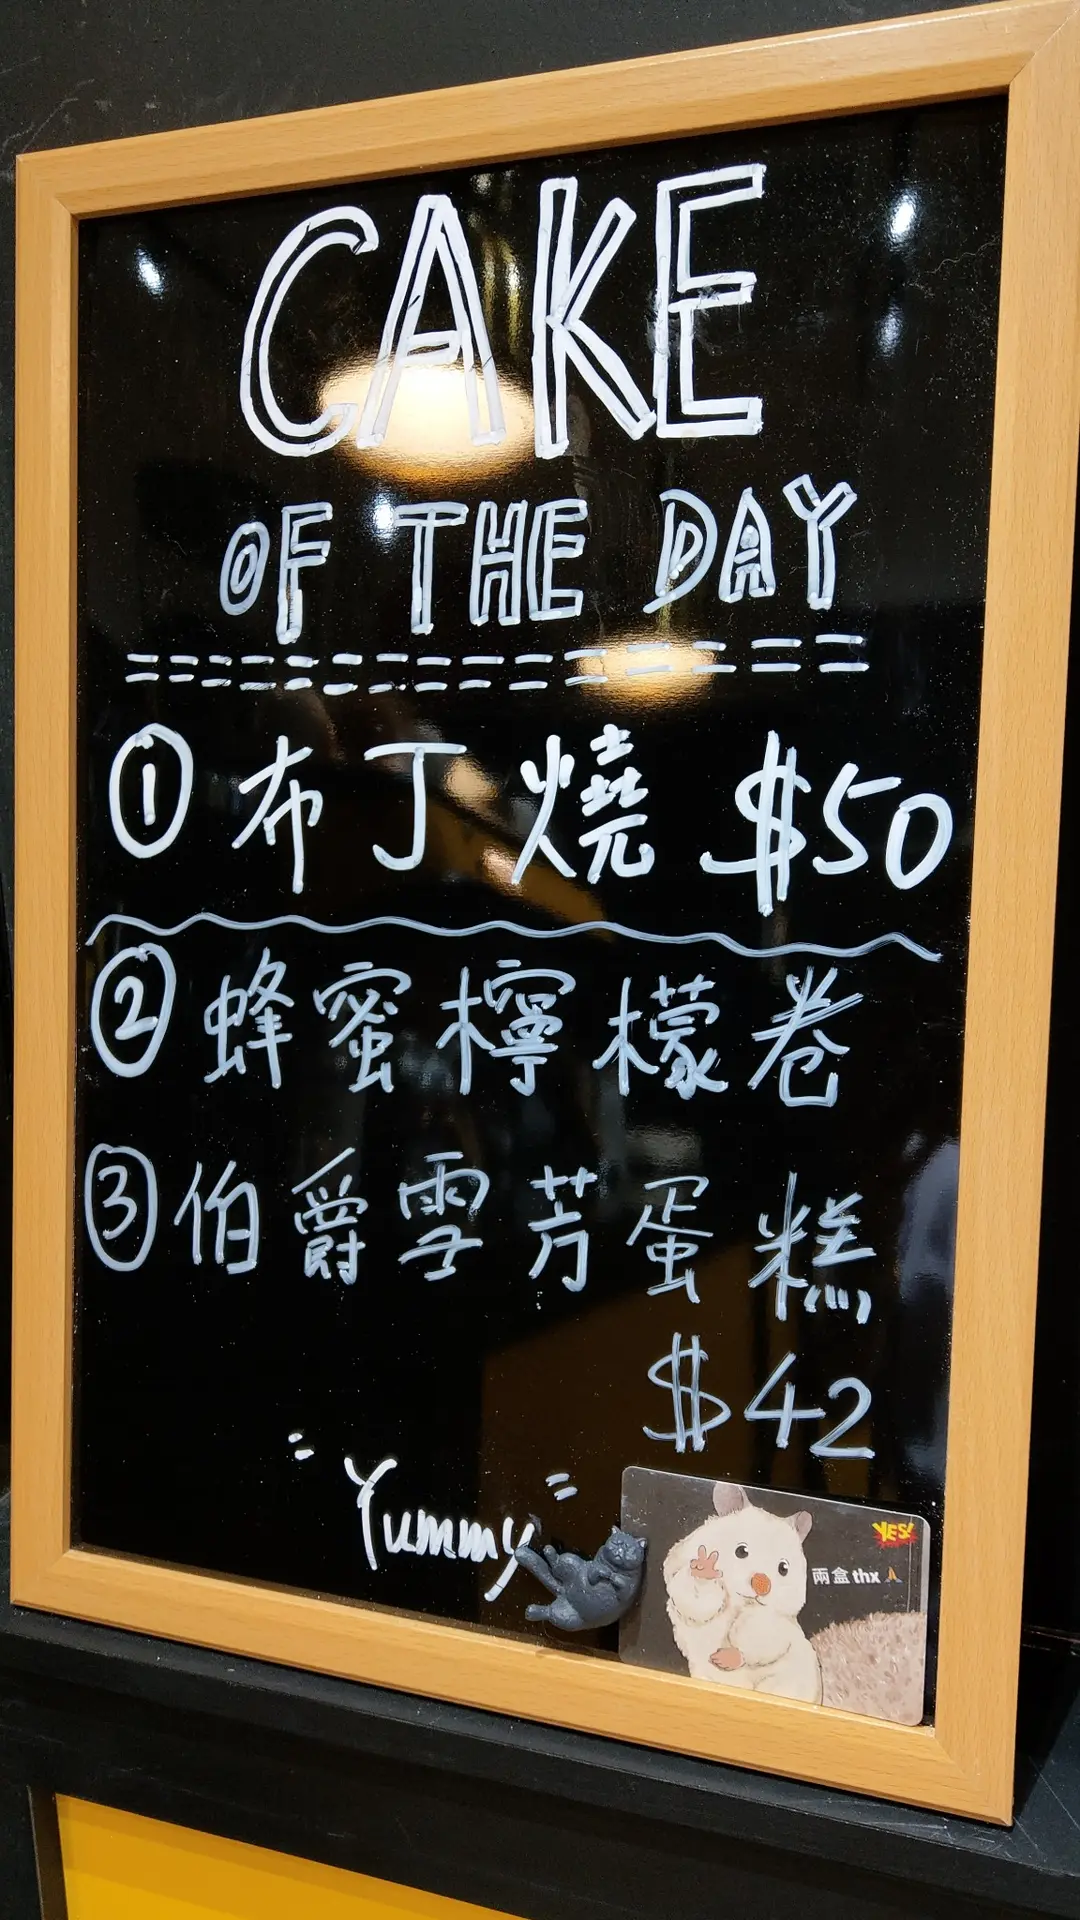 CAKE
OF THE DAY
① 布丁燒 $50
② 蜂蜜檸檬卷
③ 伯爵雪芳蛋糕
$42
"Yummy"
YES!
兩盒 thx 🙏